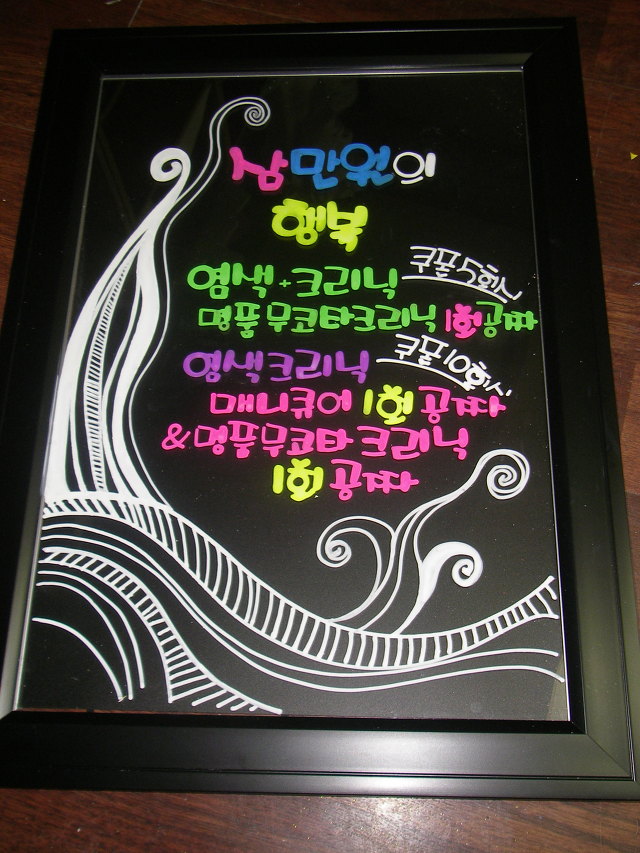 삼만원의
행복
염색+크리닉 쿠폰5회시
명품무코타크리닉 1회공짜
염색크리닉 쿠폰10회시
매니큐어 1회 공짜
&명품무코타 크리닉
1회 공짜